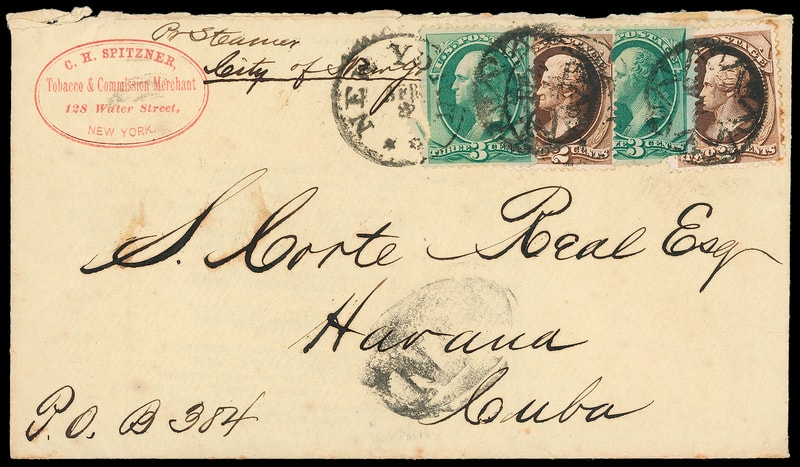 C. H. SPITZNER,
Tobacco & Commission Merchant
128 Water Street,
NEW YORK.
Pr Steamer
City of New York
NEW YO
SEP
U.S. POSTAGE
THREE 3 CENTS
POSTAGE
2 CENTS
POSTAGE
3 CENTS
POSTAGE
CENTS
S. Corte Real Esq
Havana
Cuba
P.O. B 384